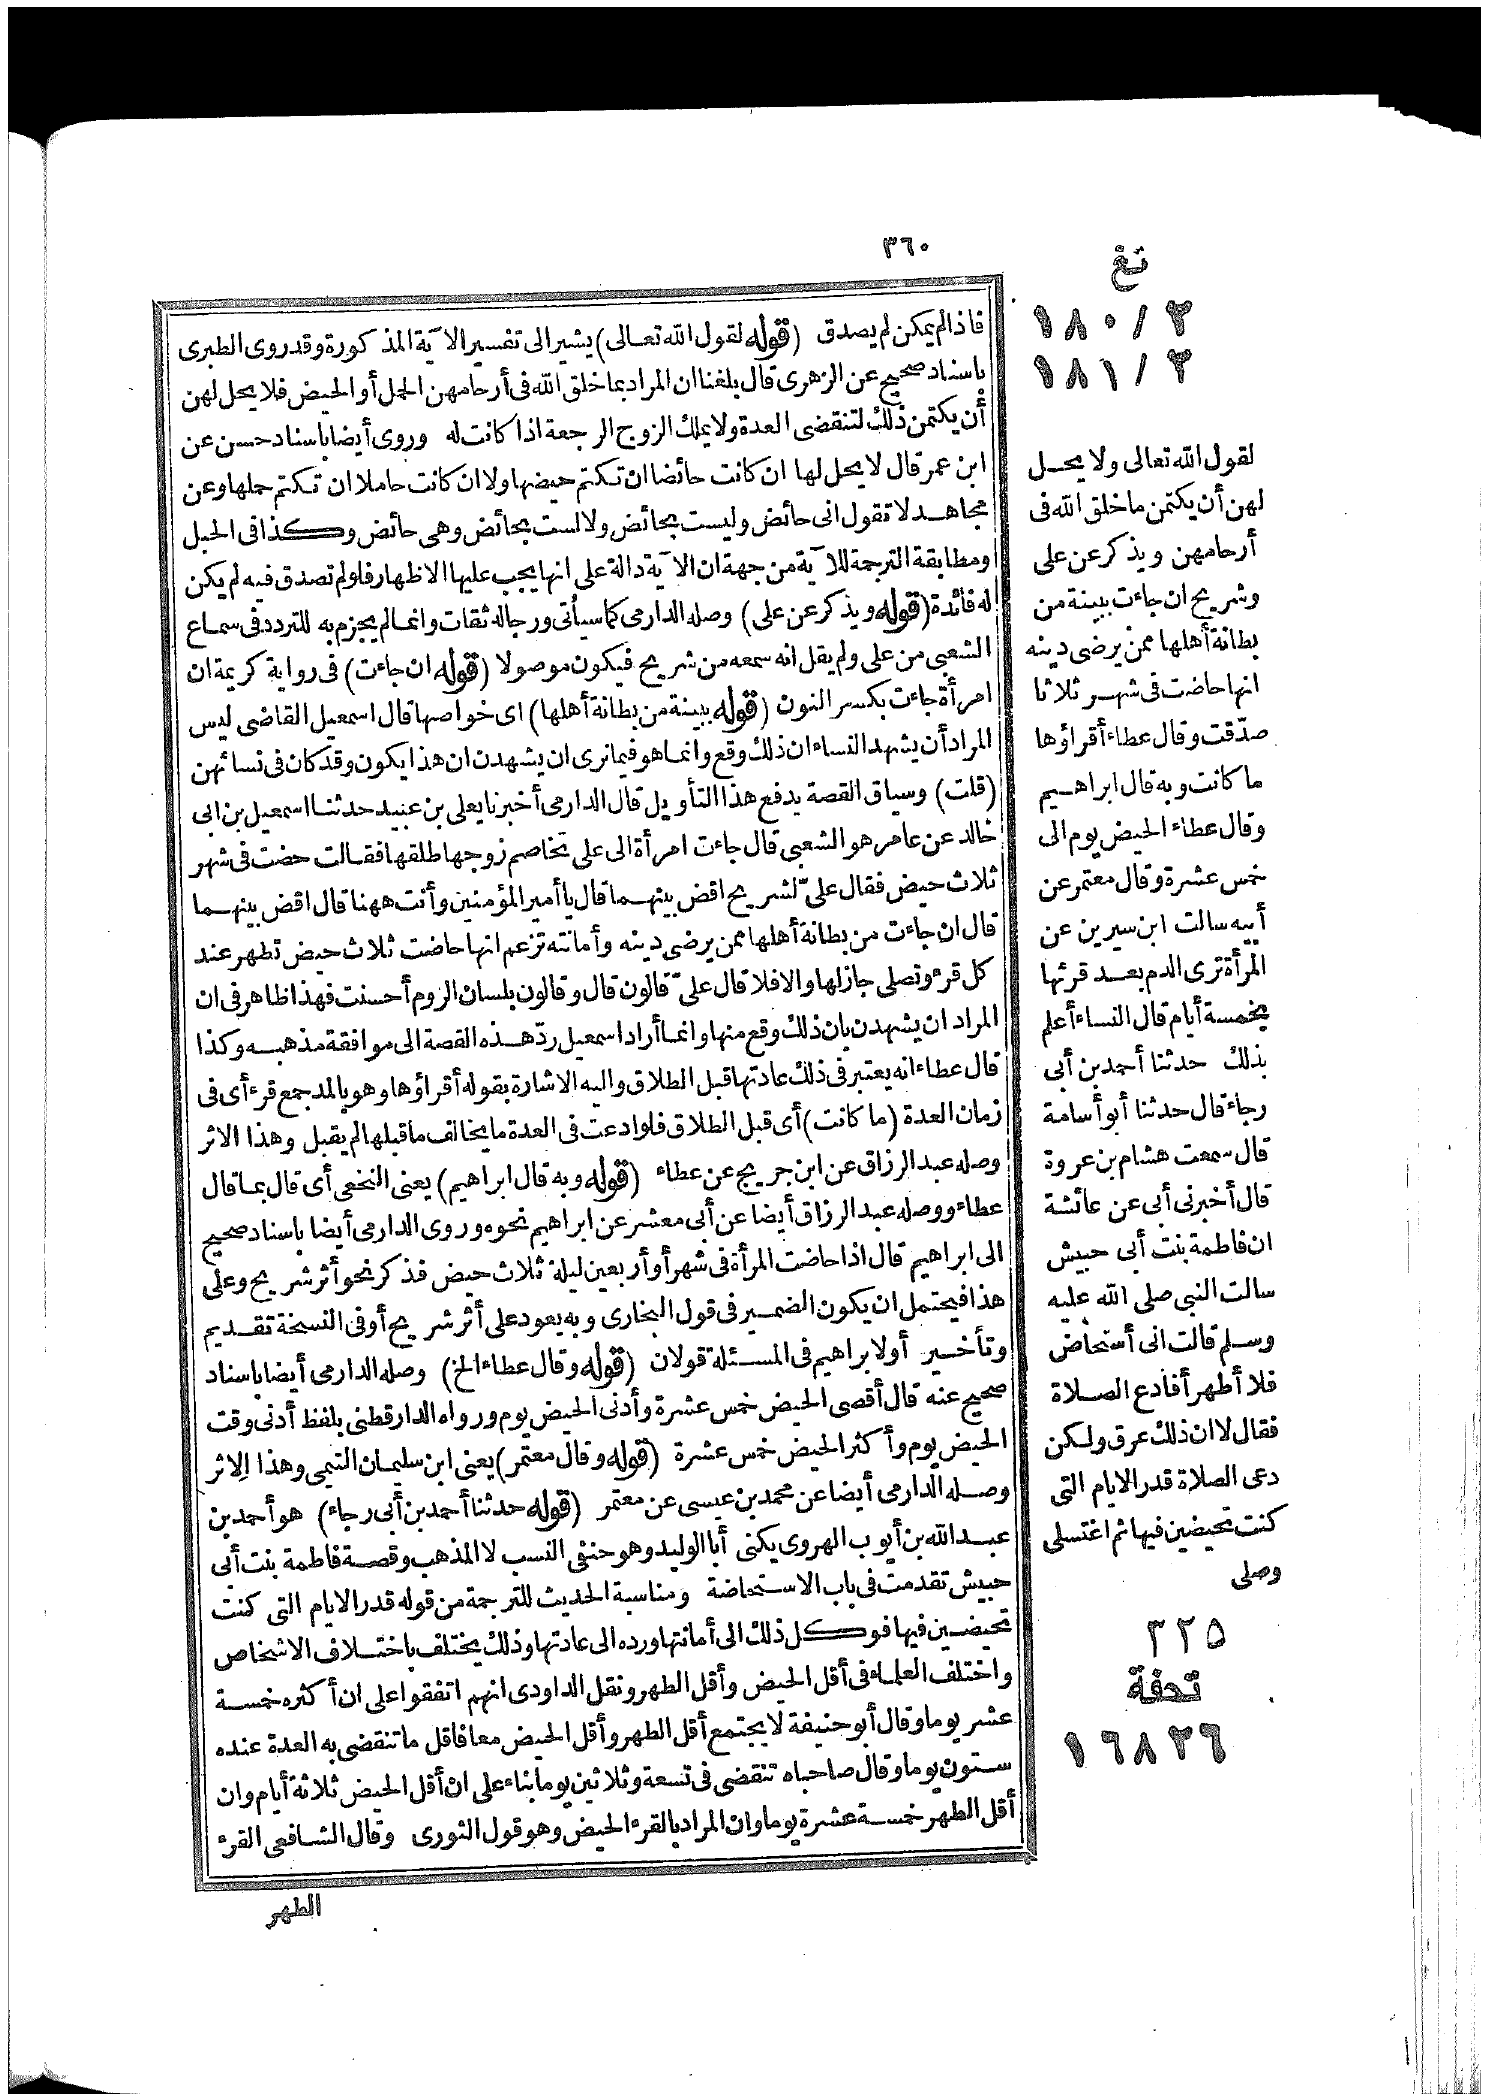 ٣٦٠
فاذا لم يمكن لم يصدق (قوله لقول الله تعالى) يشير الى تفسير الآية المذكورة وقد روى الطبرى
باسناد صحيح عن الزهرى قال بلغنا ان المراد بما خلق الله فى أرحامهن الحمل أو الحيض فلا يحل لهن
أن يكتمن ذلك لتنقضى العدة ولا يملك الزوج الرجعة اذا كانت له وروى أيضا باسناد حسن عن
ابن عمر قال لا يحل لها ان كانت حائضا ان تكتم حيضها ولا ان كانت حاملا ان تكتم حملها وعن
مجاهد لا تقول انى حائض وليست بحائض ولا لست بحائض وهى حائض وكذا فى الحبل
ومطابقة الترجمة للآية من جهة ان الآية دالة على انها يجب عليها الاظهار فلو لم تصدق فيه لم يكن
له فائدة (قوله ويذكر عن على) وصله الدارمى كما سيأتى ورجاله ثقات وانما لم يجزم به للتردد فى سماع
الشعبى من على ولم يقل انه سمعه من شريح فيكون موصولا (قوله ان جاءت) فى رواية كريمة ان
امرأة جاءت بكسر النون (قوله ببينة من بطانة أهلها) اى خواصها قال اسمعيل القاضى ليس
المراد أن يشهد النساء ان ذلك وقع وانما هو فيما نرى ان يشهدن ان هذا يكون وقد كان فى نسائهن
(قلت) وسياق القصة يدفع هذا التأويل قال الدارمى أخبرنا يعلى بن عبيد حدثنا اسمعيل بن ابى
خالد عن عامر هو الشعبى قال جاءت امرأة الى على تخاصم زوجها طلقها فقالت حضت فى شهر
ثلاث حيض فقال علىّ لشريح اقض بينهما قال يا أمير المؤمنين وأنت ههنا قال اقض بينهما
قال ان جاءت من بطانة أهلها ممن يرضى دينه وأمانته تزعم انها حاضت ثلاث حيض تطهر عند
كل قرء وتصلى جاز لها والا فلا قال علىّ قالون قال وقالون بلسان الروم أحسنت فهذا ظاهر فى ان
المراد ان يشهدن بان ذلك وقع منها وانما أراد اسمعيل ردّ هذه القصة الى موافقة مذهبه وكذا
قال عطاء انه يعتبر فى ذلك عادتها قبل الطلاق واليه الاشارة بقوله أقراؤها وهو بالمد جمع قرء أى فى
زمان العدة (ما كانت) أى قبل الطلاق فلو ادعت فى العدة ما يخالف ما قبلها لم يقبل وهذا الاثر
وصله عبد الرزاق عن ابن جريج عن عطاء (قوله وبه قال ابراهيم) يعنى النخعى أى قال بما قال
عطاء ووصله عبد الرزاق أيضا عن أبى معشر عن ابراهيم نحوه وروى الدارمى أيضا باسناد صحيح
الى ابراهيم قال اذا حاضت المرأة فى شهر أو أربعين ليلة ثلاث حيض فذكر نحو أثر شريح وعلى
هذا فيحتمل ان يكون الضمير فى قول البخارى وبه يعود على أثر شريح أو فى النسخة تقديم
وتأخير أو لابراهيم فى المسئلة قولان (قوله وقال عطاء الخ) وصله الدارمى أيضا باسناد
صحيح عنه قال أقصى الحيض خمس عشرة وأدنى الحيض يوم ورواه الدارقطنى بلفظ أدنى وقت
الحيض يوم وأكثر الحيض خمس عشرة (قوله وقال معتمر) يعنى ابن سليمان التيمى وهذا الاثر
وصله الدارمى أيضا عن محمد بن عيسى عن معتمر (قوله حدثنا أحمد بن أبى رجاء) هو أحمد بن
عبد الله بن أيوب الهروى يكنى أبا الوليد وهو حنفى النسب لا المذهب وقصة فاطمة بنت أبى
حبيش تقدمت فى باب الاستحاضة ومناسبة الحديث للترجمة من قوله قدر الايام التى كنت
تحيضين فيها فوكل ذلك الى أمانتها ورده الى عادتها وذلك يختلف باختلاف الاشخاص
واختلف العلماء فى أقل الحيض وأقل الطهر ونقل الداودى انهم اتفقوا على ان أكثره خمسة
عشر يوما وقال أبو حنيفة لا يجتمع أقل الطهر وأقل الحيض معا فاقل ما تنقضى به العدة عنده
ستون يوما وقال صاحباه تنقضى فى تسعة وثلاثين يوما بناء على ان أقل الحيض ثلاثة أيام وان
أقل الطهر خمسة عشرة يوما وان المراد بالقرء الحيض وهو قول الثورى وقال الشافعى القرء
الطهر
تغ
١٨٠/٢
١٨١/٢
لقول الله تعالى ولا يحل
لهن أن يكتمن ما خلق الله فى
أرحامهن ويذكر عن على
وشريح ان جاءت ببينة من
بطانة أهلها ممن يرضى دينه
انها حاضت فى شهر ثلاثا
صدّقت وقال عطاء أقراؤها
ما كانت وبه قال ابراهيم
وقال عطاء الحيض يوم الى
خمس عشرة وقال معتمر عن
أبيه سالت ابن سيرين عن
المرأة ترى الدم بعد قرئها
بخمسة أيام قال النساء أعلم
بذلك حدثنا أحمد بن أبى
رجاء قال حدثنا أبو أسامة
قال سمعت هشام بن عروة
قال أخبرنى أبى عن عائشة
ان فاطمة بنت أبى حبيش
سالت النبى صلى الله عليه
وسلم قالت انى أستحاض
فلا أطهر أفادع الصلاة
فقال لا ان ذلك عرق ولكن
دعى الصلاة قدر الايام التى
كنت تحيضين فيها ثم اغتسلى
وصلى
٣٢٥
تحفة
١٦٨٢٦